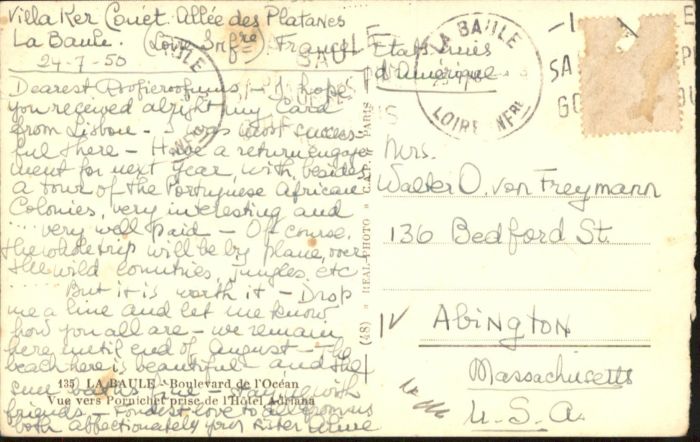 Villa Ker Couët. Allée des Platanes
La Baule. (Loire Infre) France
24-7-50
Dearest — I hope
you received alright my card
from Lisbon — I was most success
ful there — Have a return engage
ment for next year, with, besides
a tour of the Portuguese African
Colonies, very interesting and
very well paid — Of course,
the whole trip will be by plane, over
the wild countries, jungles, etc
But it is worth it — Drop
me a line and let me know
how you all are — we remain
here until end of August — The
beach here is beautiful and the
sun
friends — Fondest love to all from us
both affectionately your
135 LA BAULE - Boulevard de l'Océan
Vue vers Pornichet prise de l'Hôtel Adriana
(48) REAL-PHOTO C.A.P. PARIS
LA BAULE
LOIRE INFRE
Etats Unis
d'Amérique
Mrs.
Walter O. von Freymann
136 Bedford St.
Abington
Massachusetts
U.S.A.